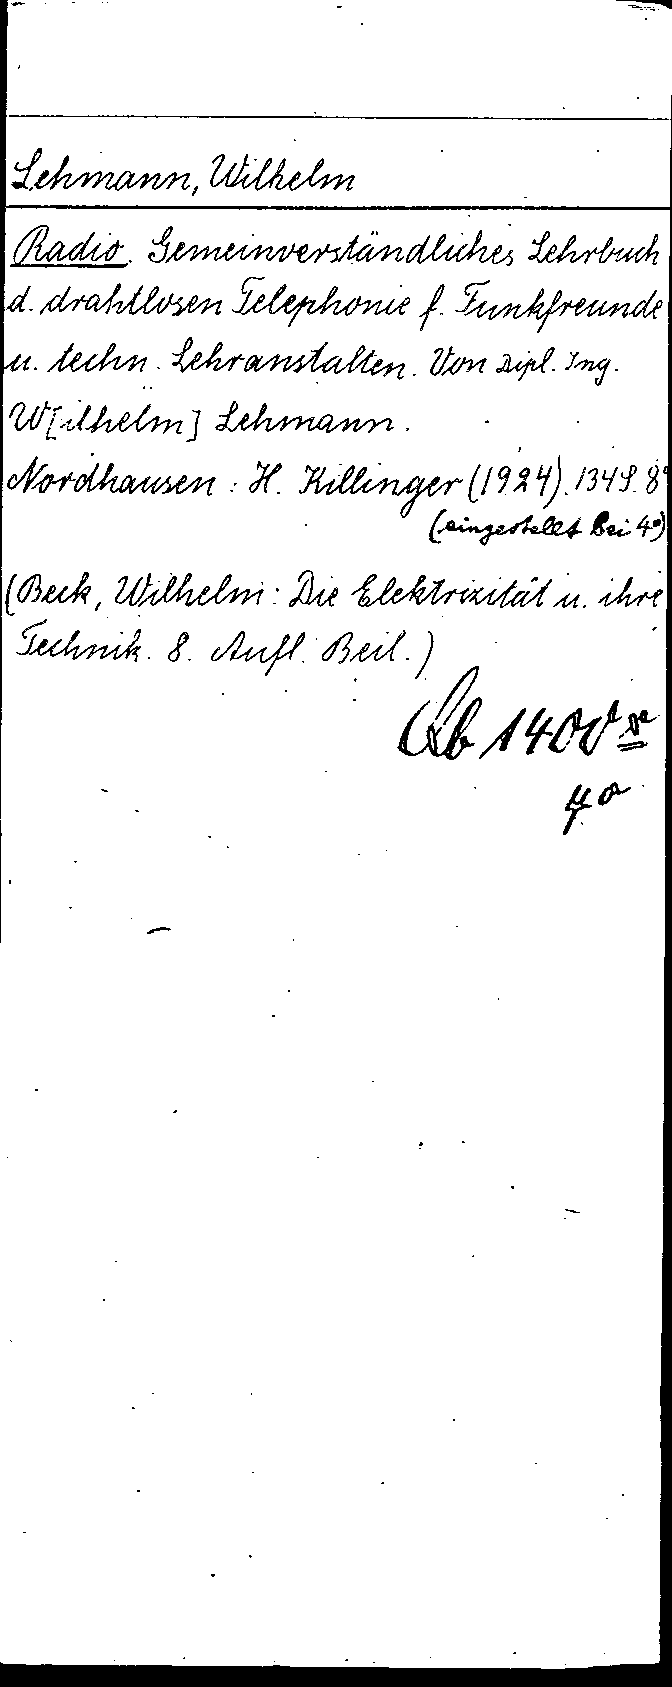 Lehmann, Wilhelm
Radio. Gemeinverständliches Lehrbuch
d. drahtlosen Telephonie f. Funkfreunde
u. techn. Lehranstalten. Von Dipl. Ing.
W[ilhelm] Lehmann.
Nordhausen: H. Killinger (1924). 134 S. 8°
(eingestellt bei 4°)
(Beck, Wilhelm: Die Elektrizität u. ihre
Technik. 8. Aufl. Beil.)
1400
4°